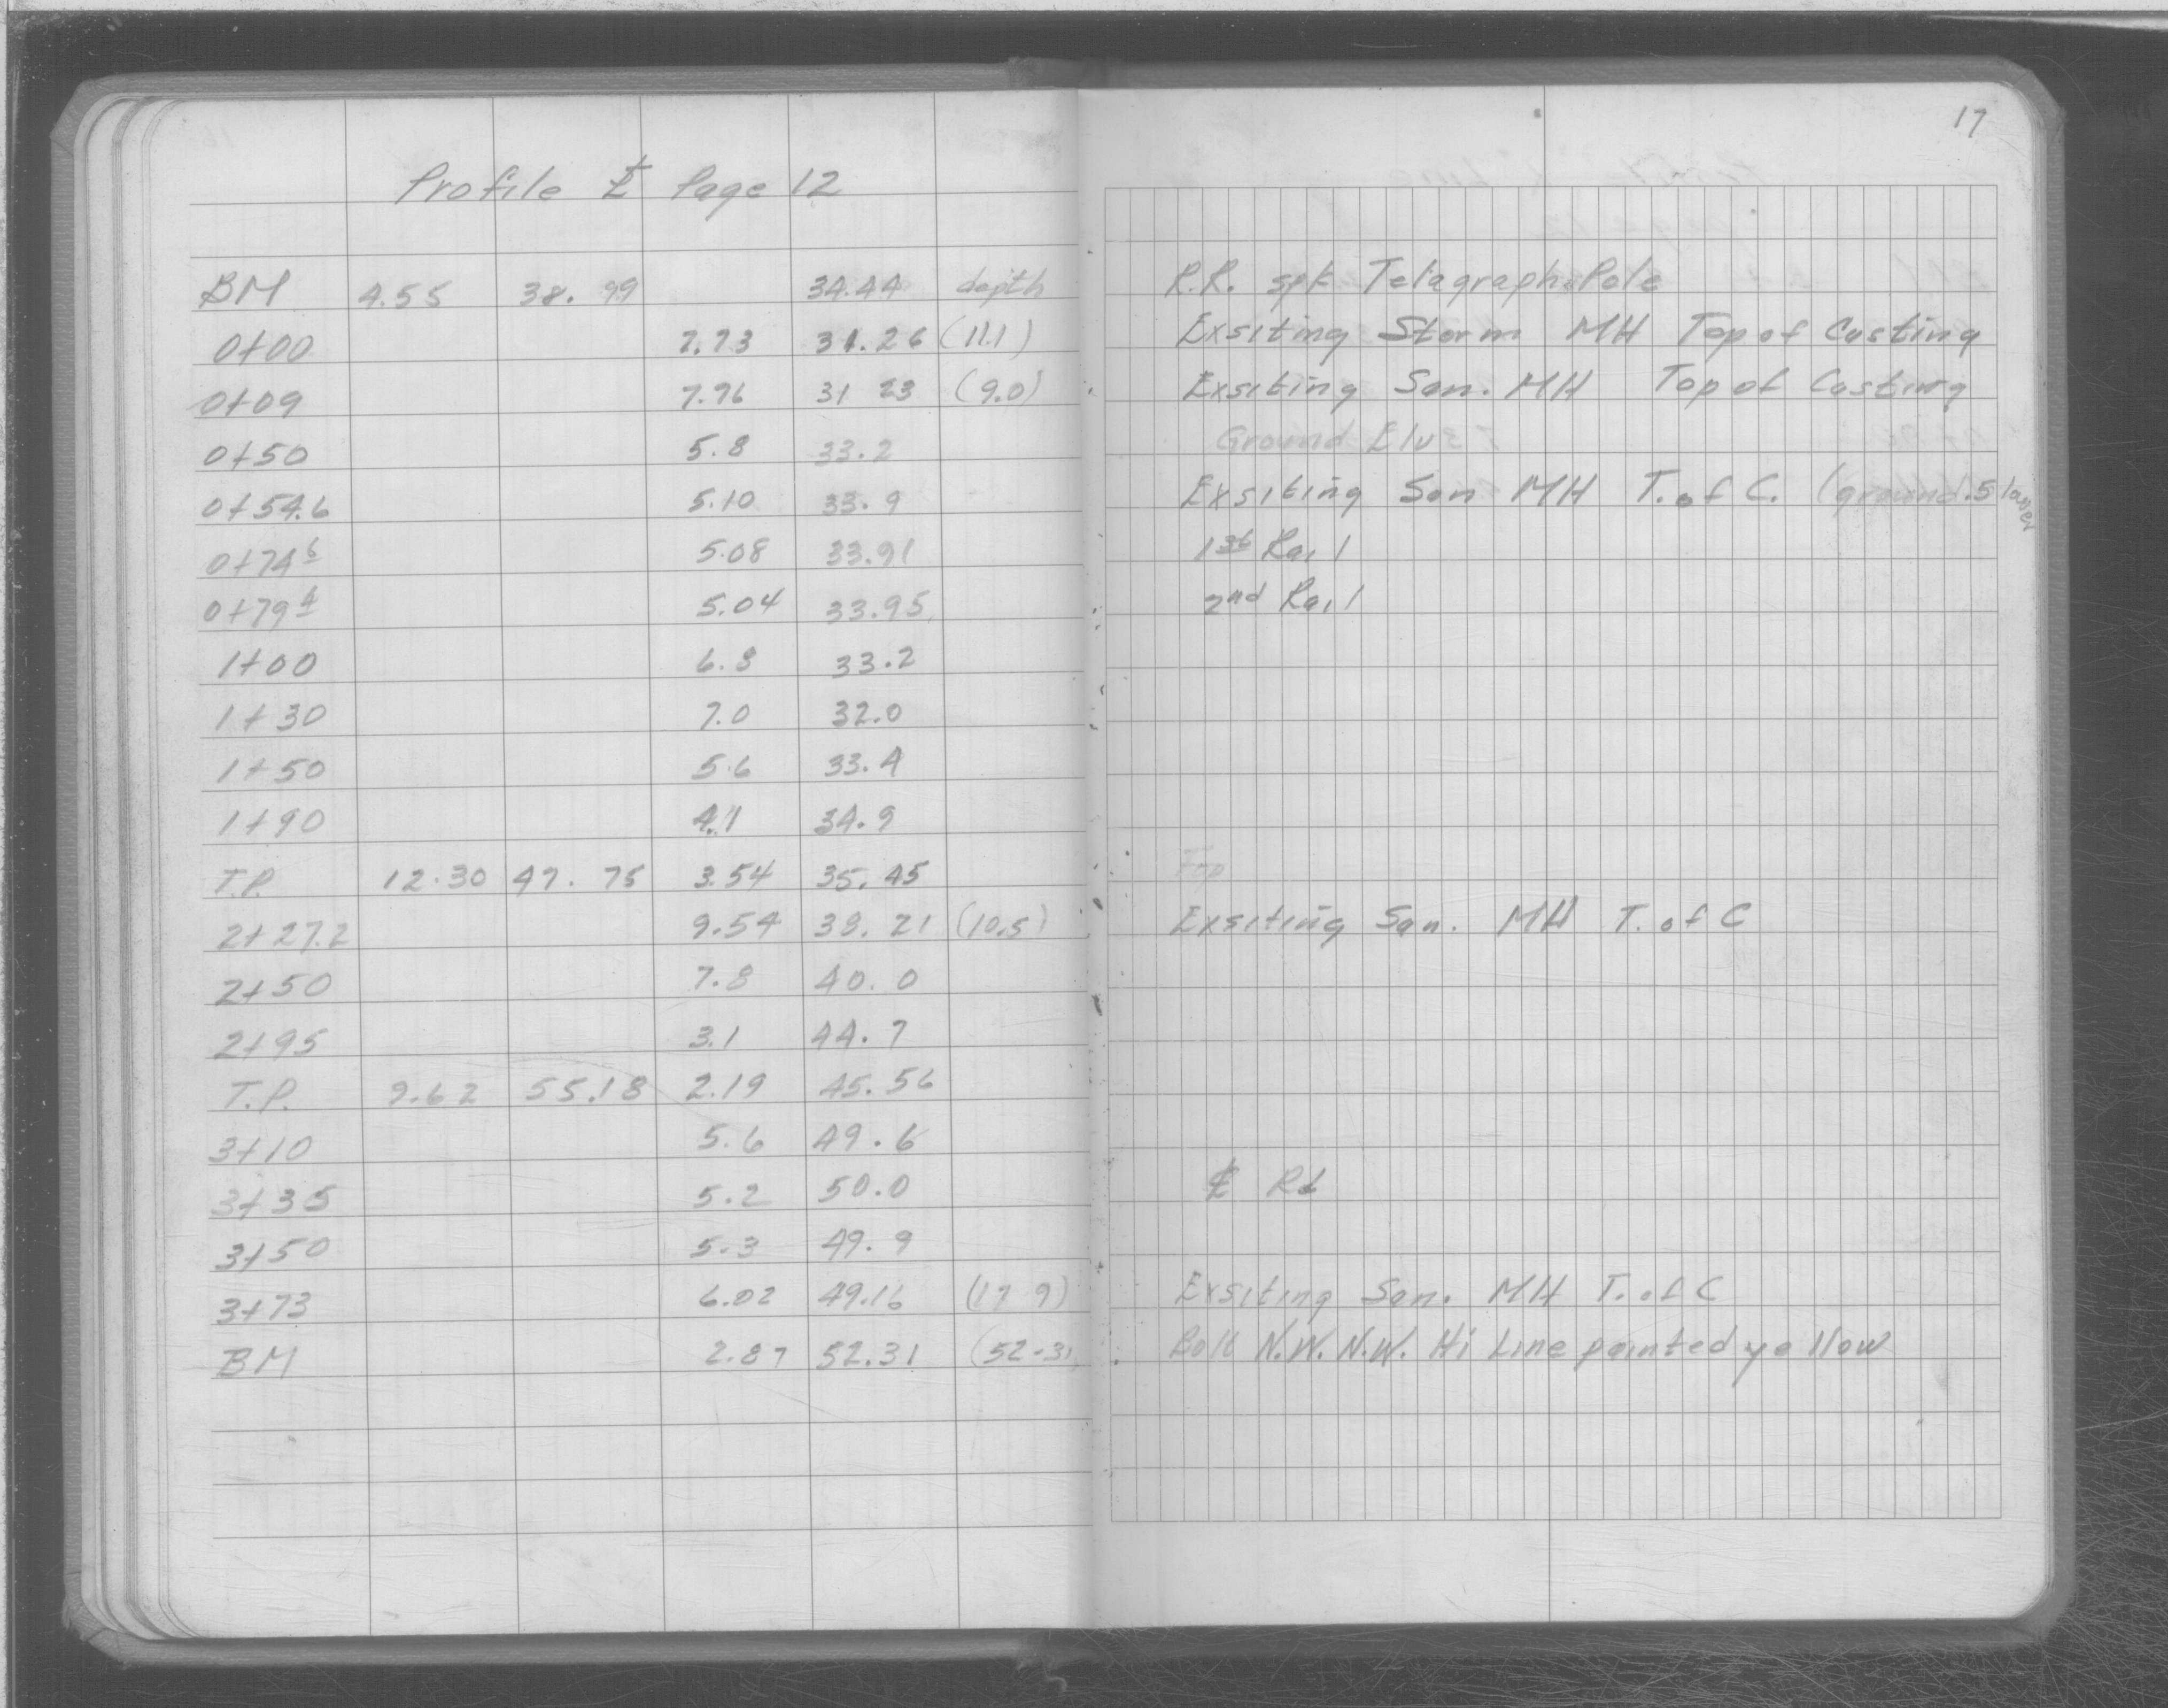 17
Profile ℄ Page 12
BM 4.55 38.99 34.44 depth R.R. spk Telegraph Pole
0+00 7.73 31.26 (11.1) Exsiting Storm MH Top of Casting
0+09 7.76 31 23 (9.0) Exsiting San. MH Top of Casting
0+50 5.8 33.2 Ground Elv
0+54.6 5.10 33.9 Exsiting San MH T. of C. (ground .5 lower
0+74⁶ 5.08 33.91 1st Rail
0+79⁴ 5.04 33.95 2nd Rail
1+00 33.2
1+30 7.0 32.0
1+50 5.6 33.4
1+90 4.1 34.9
T.P. 12.30 47.75 3.54 35.45 Top
2+27.2 9.54 38.21 (10.5) Exsiting San. MH T. of C
2+50 7.8 40.0
2+95 3.1 44.7
T.P. 9.62 55.18 2.19 45.56
3+10 5.6 49.6
3+35 5.2 50.0 ℄ Rd
3+50 5.3 49.9
3+73 6.02 49.16 (17 9) Exsiting San. MH T. of C
BM 2.87 52.31 (52.31 Bolt N.W. N.W. Hi Line painted yellow